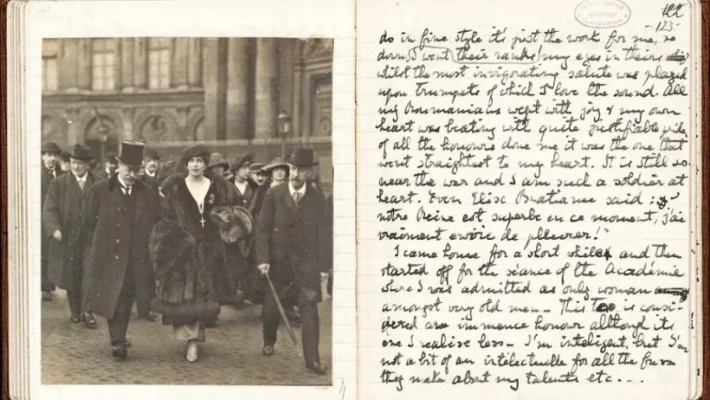 122
-123-
do in fine style it's just the work for me, so
down I went their ranks! my eyes in theirs
whilst the most invigorating salute was played
upon trumpets of which I love the sound. All
my Roumanians wept with joy & my own
heart was beating with quite justifiable pride
of all the honours done me it was the one that
went straightest to my heart. It is still so
near the war and I am such a soldier at
heart. Even Elise Bratianu said :
notre Reine est superbe en ce moment, j'ai
vraiment envie de pleurer!"
I came home for a short while and then
started off for the séance of the Académie
where I was admitted as only woman
amongst very old men - This is consi-
dered an immence honour although its
one I realise less - I'm inteligent, but I'm
not a bit of an intelectuelle for all the fuss
they make about my talents etc...